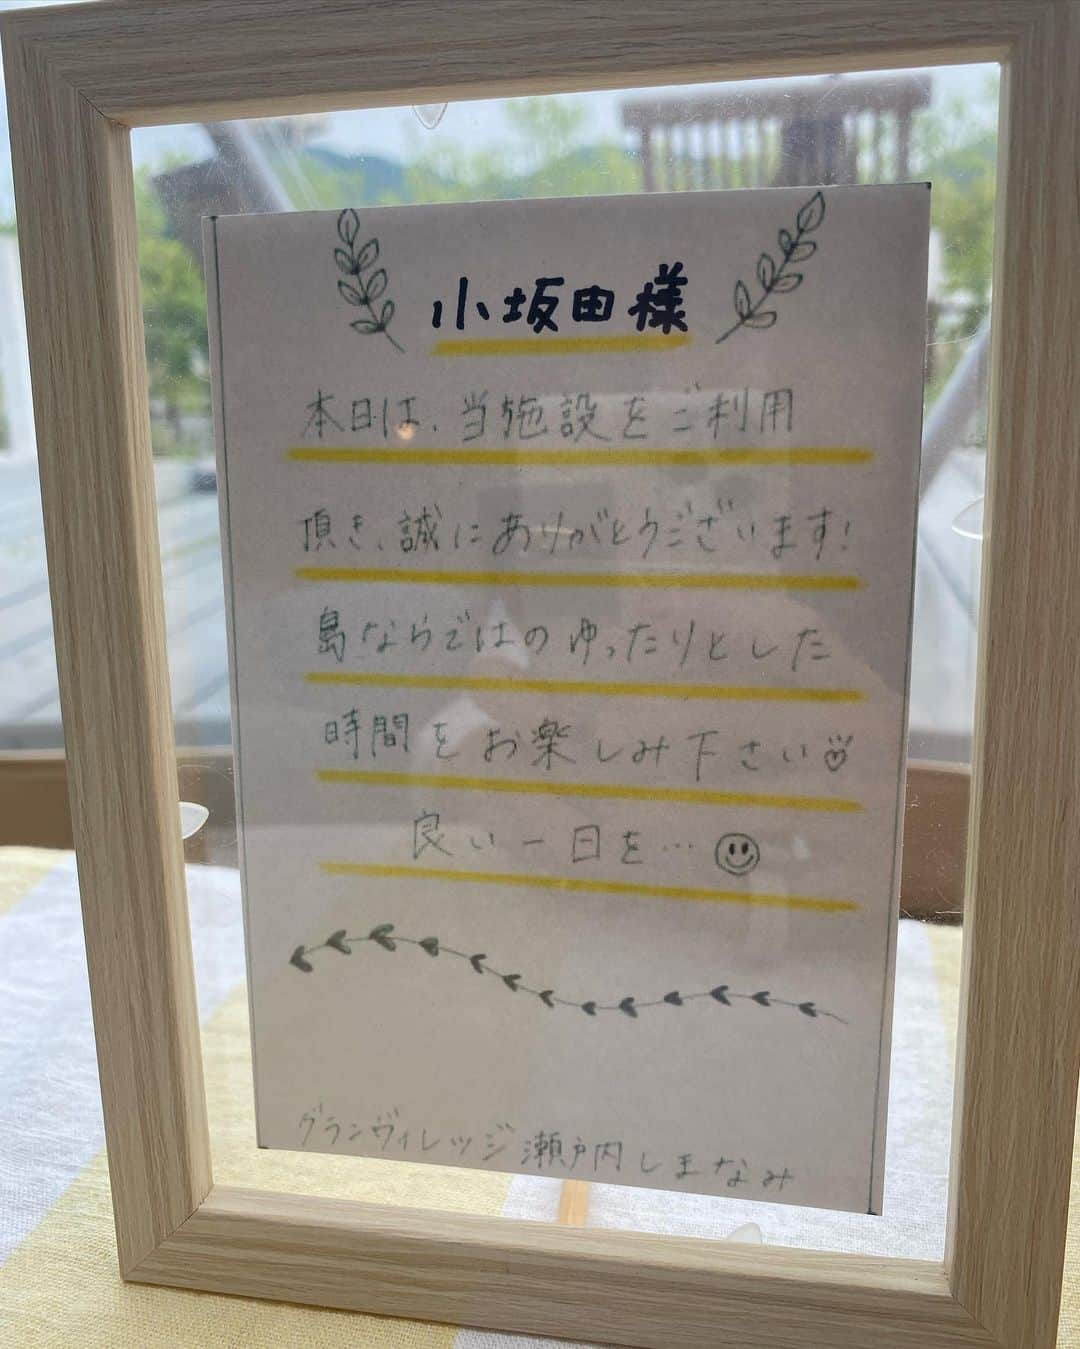 小坂田様
本日は、当施設をご利用
頂き、誠にありがとうございます!
島ならではのゆったりとした
時間をお楽しみ下さい
良い一日を…
グランヴィレッジ瀬戸内しまなみ